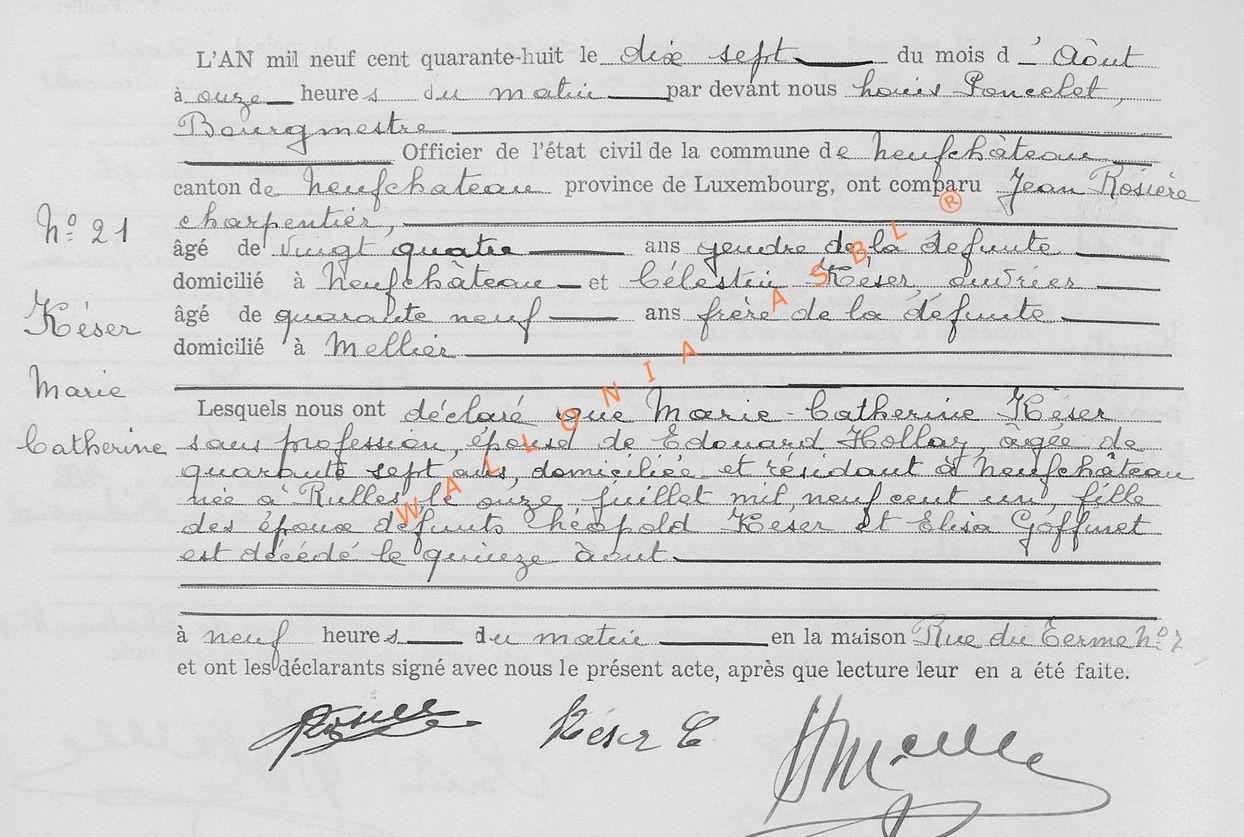 L'AN mil neuf cent quarante-huit le dix sept du mois d'Aôut
à onze heures du matin par devant nous Louis Poncelet,
Bourgmestre
Officier de l'état civil de la commune de Neufchâteau
canton de Neufchateau province de Luxembourg, ont comparu Jean Rosière
charpentier,
âgé de vingt quatre ans gendre de la défunte
domicilié à Neufchâteau et Célestin Késer, ouvrier
âgé de quarante neuf ans frère de la défunte
domicilié à Mellier
Lesquels nous ont déclaré que Marie-Catherine Késer
sans profession, épouse de Edouard Hollay, âgée de
quarante sept ans, domiciliée et résidant à Neufchâteau
née à Rulles, le onze juillet mil neuf cent un, fille
des époux défunts Théopold Késer et Elisa Goffinet
est décédé le quinze août
à neuf heures du matin en la maison Rue du Terme No 2
et ont les déclarants signé avec nous le présent acte, après que lecture leur en a été faite.
No 21
Késer
Marie
Catherine
Késer C
WALLONIA ASBL ®